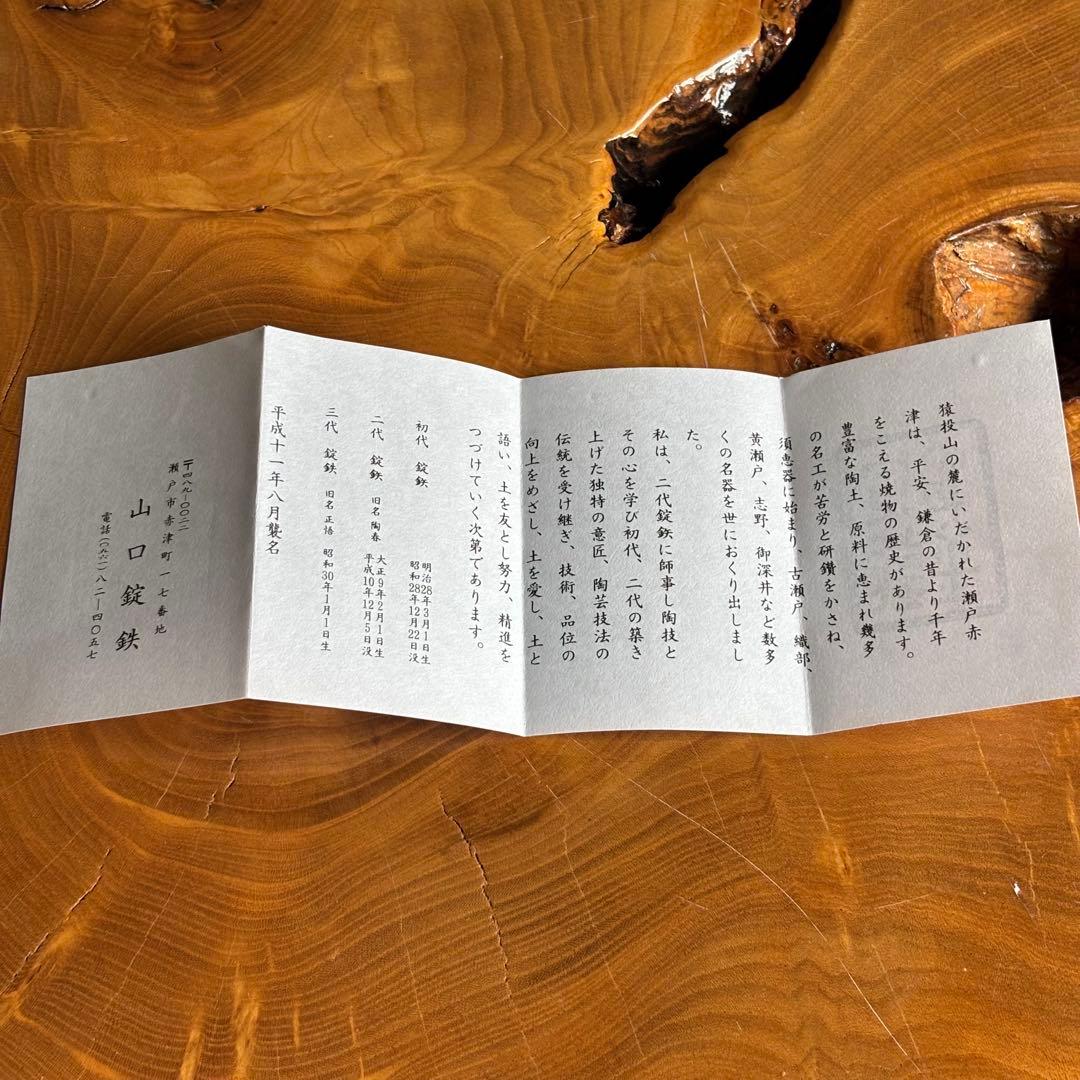 猿投山の麓にいだかれた瀬戸赤
津は、平安、鎌倉の昔より千年
をこえる焼物の歴史があります。
豊富な陶土、原料に恵まれ幾多
の名工が苦労と研鑽をかさね、
須恵器に始まり、古瀬戸、織部、
黄瀬戸、志野、御深井など数多
くの名器を世におくり出しまし
た。
私は、二代錠鉄に師事し陶技と
その心を学び初代、二代の築き
上げた独特の意匠、陶芸技法の
伝統を受け継ぎ、技術、品位の
向上をめざし、土を愛し、土と
語い、土を友とし努力、精進を
つづけていく次第であります。
初代 錠鉄 明治28年3月1日生
昭和28年12月22日没
二代 錠鉄 旧名陶春 大正9年2月1日生
平成10年12月5日没
三代 錠鉄 旧名正悟 昭和30年1月1日生
平成十一年八月襲名
〒四八九−〇〇二二
瀬戸市赤津町一七番地
山口錠鉄
電話(〇五六一)八二−四〇五七